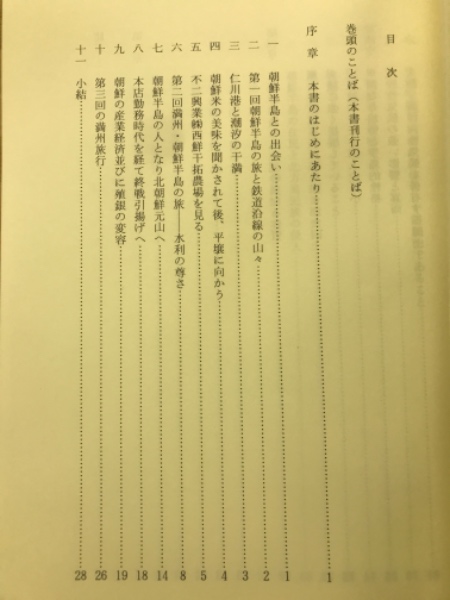 目次
巻頭のことば(本書刊行のことば)
序章 本書のはじめにあたり……1
一 朝鮮半島との出会い……1
二 第一回朝鮮半島の旅と鉄道沿線の山々……2
三 仁川港と潮汐の干満……3
四 朝鮮米の美味を聞かされて後、平壌に向かう……4
五 不二興業㈱西鮮干拓農場を見る……5
六 第二回満州・朝鮮半島の旅──水利の尊さ……8
七 朝鮮半島の人となり北朝鮮元山へ……14
八 本店勤務時代を経て終戦引揚げへ……18
九 朝鮮の産業経済並びに殖銀の変容……19
十 第三回の満州旅行……26
十一 小結……28